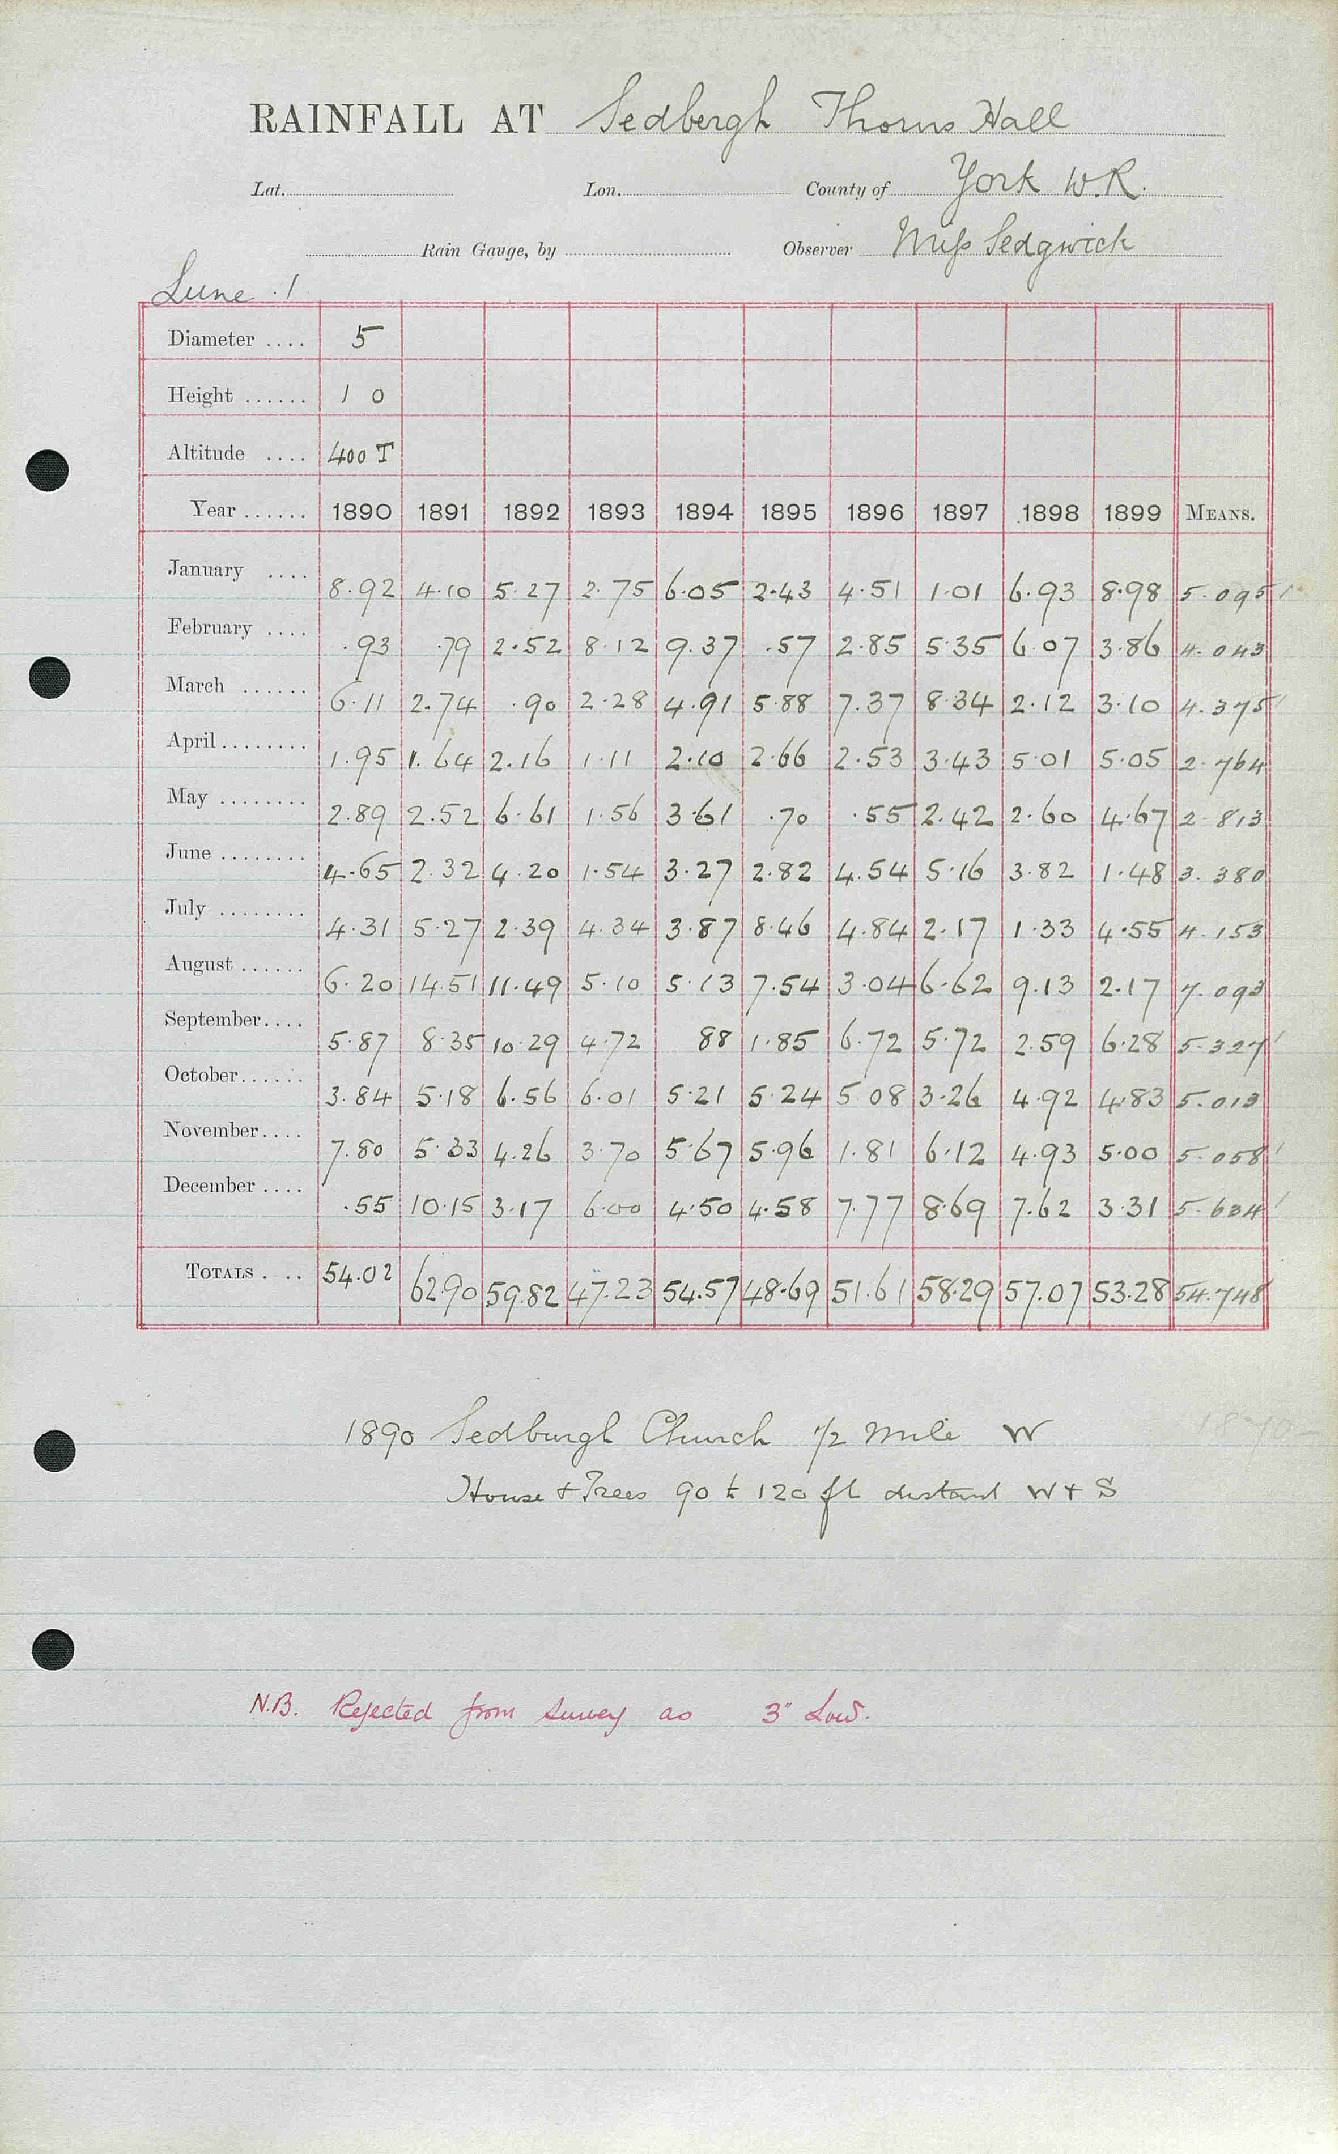 RAINFALL AT Sedbergh Thorns Hall
Lat. Lon. County of York W.R.
Rain Gauge, by Observer Miss Sedgwick
Lune . 1
Diameter .... 5
Height ...... 1 0
Altitude .... 400 T
Year ...... 1890 1891 1892 1893 1894 1895 1896 1897 1898 1899 MEANS.
January .... 8.92 4.10 5.27 2.75 6.05 2.43 4.51 1.01 6.93 8.98 5.095
February .... .93 .79 2.52 8.12 9.37 .57 2.85 5.35 6.07 3.86 4.043
March ...... 6.11 2.74 .90 2.28 4.91 5.88 7.37 8.34 2.12 3.10 4.375
April ........ 1.95 1.64 2.16 1.11 2.10 2.66 2.53 3.43 5.01 5.05 2.764
May ........ 2.89 2.52 6.61 1.56 3.61 .70 .55 2.42 2.60 4.67 2.813
June ........ 4.65 2.32 4.20 1.54 3.27 2.82 4.54 5.16 3.82 1.48 3.380
July ........ 4.31 5.27 2.39 4.34 3.87 8.46 4.84 2.17 1.33 4.55 4.153
August ...... 6.20 14.51 11.49 5.10 5.13 7.54 3.04 6.62 9.13 2.17 7.093
September.... 5.87 8.35 10.29 4.72 88 1.85 6.72 5.72 2.59 6.28 5.327
October...... 3.84 5.18 6.56 6.01 5.21 5.24 5.08 3.26 4.92 4.83 5.013
November.... 7.80 5.33 4.26 3.70 5.67 5.96 1.81 6.12 4.93 5.00 5.058
December .... .55 10.15 3.17 6.00 4.50 4.58 7.77 8.69 7.62 3.31 5.634
TOTALS .... 54.02 62.90 59.82 47.23 54.57 48.69 51.61 58.29 57.07 53.28 54.748
1890 Sedburgh Church 1/2 mile W
House & Trees 90 to 120 ft distant W & S
N.B. Rejected from survey as 3" Low.